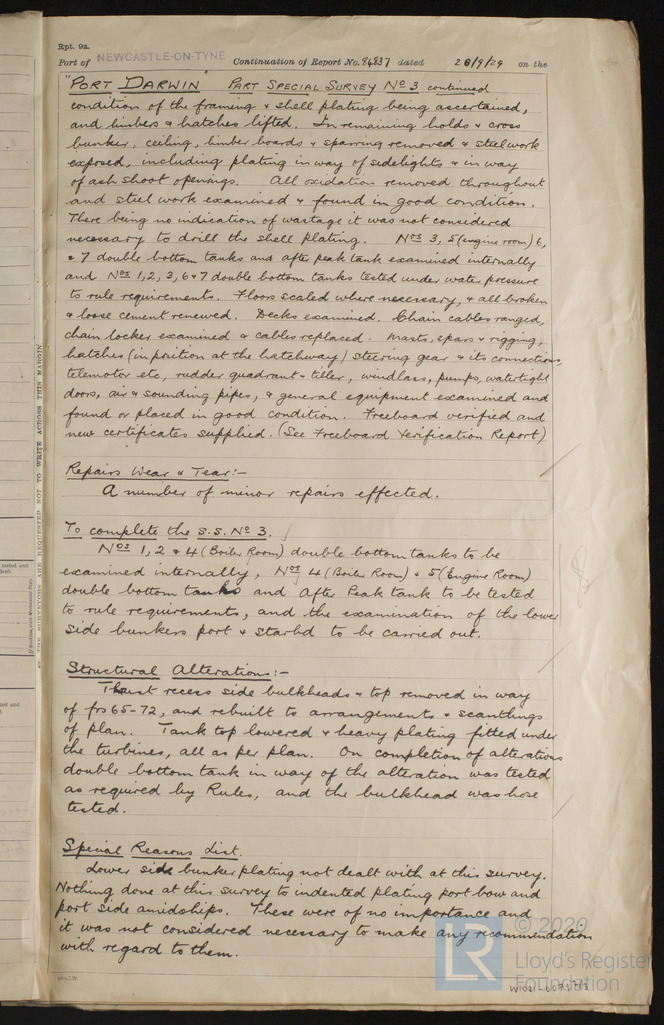 Rpt. 9a.
Port of NEWCASTLE-ON-TYNE Continuation of Report No. 84837 dated 28/9/29 on the
"PORT DARWIN" PART SPECIAL SURVEY Nº 3 continued
condition of the framing & shell plating being ascertained,
and limbers & hatches lifted. In remaining holds & cross
bunker, ceiling, limber boards & sparring removed & steelwork
exposed, including plating in way of sidelights & in way
of ash shoot openings. All oxidation removed throughout
and steel work examined & found in good condition.
There being no indication of wastage it was not considered
necessary to drill the shell plating. Nos 3, 5 (engine room) 6,
& 7 double bottom tanks and after peak tank examined internally
and Nos 1, 2, 3, 6 & 7 double bottom tanks tested under water pressure
to rule requirements. Floors scaled where necessary, & all broken
& loose cement renewed. Decks examined. Chain cables ranged,
chain locker examined & cables replaced. Masts, spars & rigging,
hatches (in position at the hatchway) steering gear & its connections,
telemotor etc, rudder quadrant & tiller, windlass, pumps, watertight
doors, air & sounding pipes, & general equipment examined and
found or placed in good condition. Freeboard verified and
new certificates supplied. (See Freeboard Verification Report)
Repairs Wear & Tear:-
A number of minor repairs effected.
To complete the S.S. Nº 3.
Nos 1, 2 & 4 (Boiler Room) double bottom tanks to be
examined internally, Nos 4 (Boiler Room) & 5 (Engine Room)
double bottom tanks and After Peak tank to be tested
to rule requirements, and the examination of the lower
side bunkers port & starbd to be carried out.
Structural Alterations:-
Thrust recess side bulkheads & top removed in way
of frs 65-72, and rebuilt to arrangements & scantlings
of plan. Tank top lowered & heavy plating fitted under
the turbines, all as per plan. On completion of alterations
double bottom tank in way of the alteration was tested
as required by Rules, and the bulkhead was hose
tested.
Special Reasons List.
Lower side bunker plating not dealt with at this survey.
Nothing done at this survey to indented plating port bow and
port side amidships. These were of no importance and
it was not considered necessary to make any recommendation
with regard to them.
© 2020
Lloyd's Register
Foundation